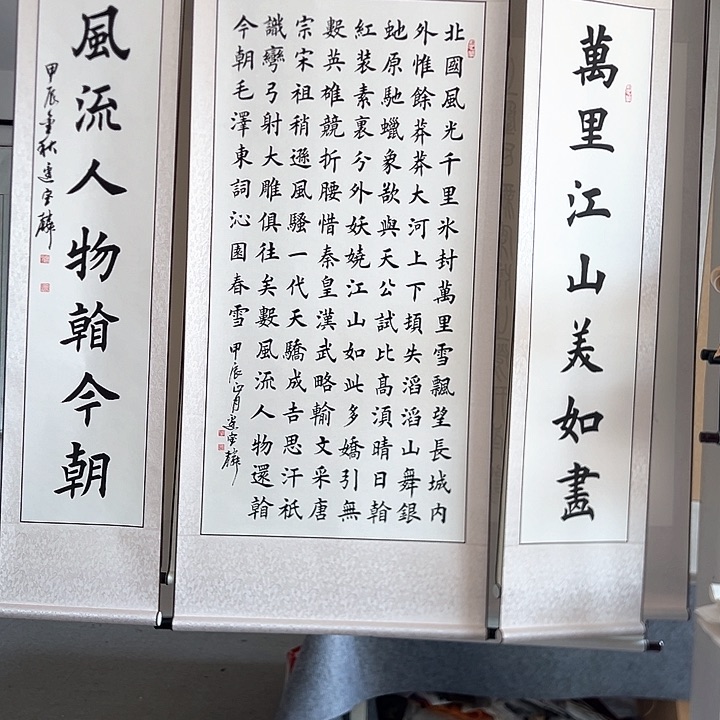 萬里江山美如畫
北國風光千里氷封萬里雪飄望長城内
外惟餘莽莽大河上下頓失滔滔山舞銀
虵原馳蠟象欲與天公試比高湏晴日看
紅装素裹兮外妖嬈江山如此多嬌引無
數英雄競折腰惜秦皇漢武略輸文采唐
宗宋祖稍遜風騷一代天驕成吉思汗祇
識彎弓射大雕俱往矣數風流人物還看
今朝毛澤東詞沁園春雪 甲辰正月
風流人物看今朝
甲辰金秋